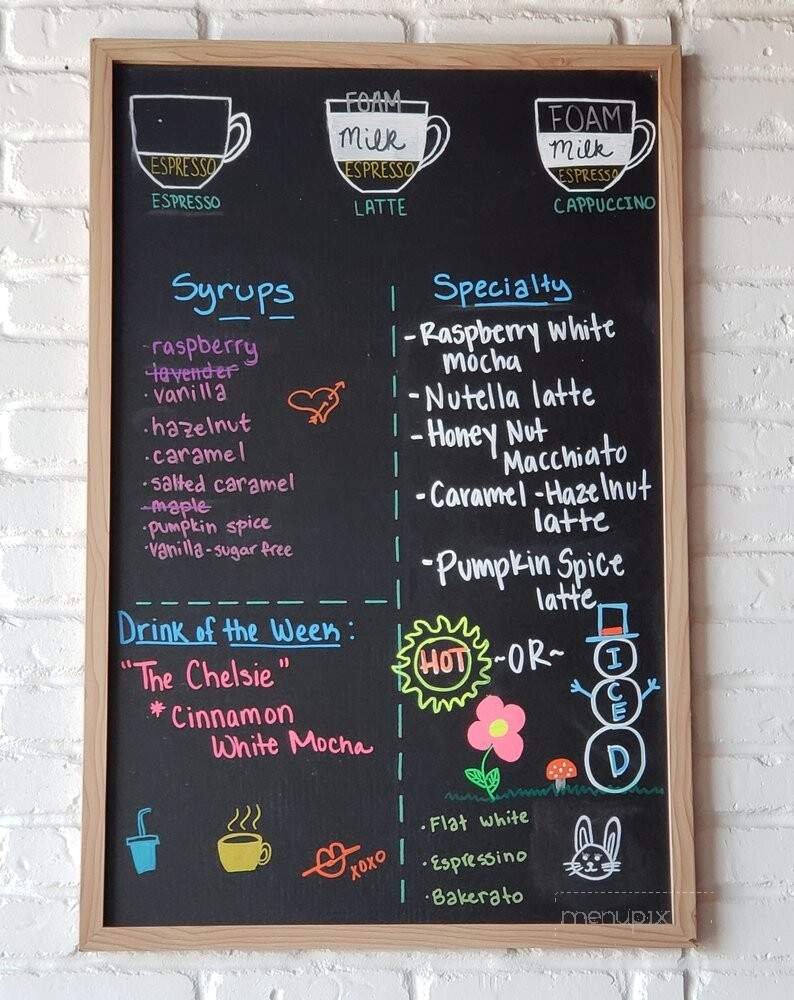 ESPRESSO
ESPRESSO
FOAM
Milk
ESPRESSO
LATTE
FOAM
Milk
ESPRESSO
CAPPUCCINO
Syrups
·raspberry
·lavender
·vanilla
·hazelnut
·caramel
·salted caramel
·maple
·pumpkin spice
·vanilla-sugar free
Specialty
-Raspberry White
mocha
-Nutella latte
-Honey Nut
Macchiato
-Caramel-Hazelnut
latte
-Pumpkin Spice
latte
HOT ~OR~ ICED
Drink of the Week:
"The Chelsie"
*Cinnamon
White Mocha
XOXO
·Flat white
·Espressino
·Bakerato
menupix